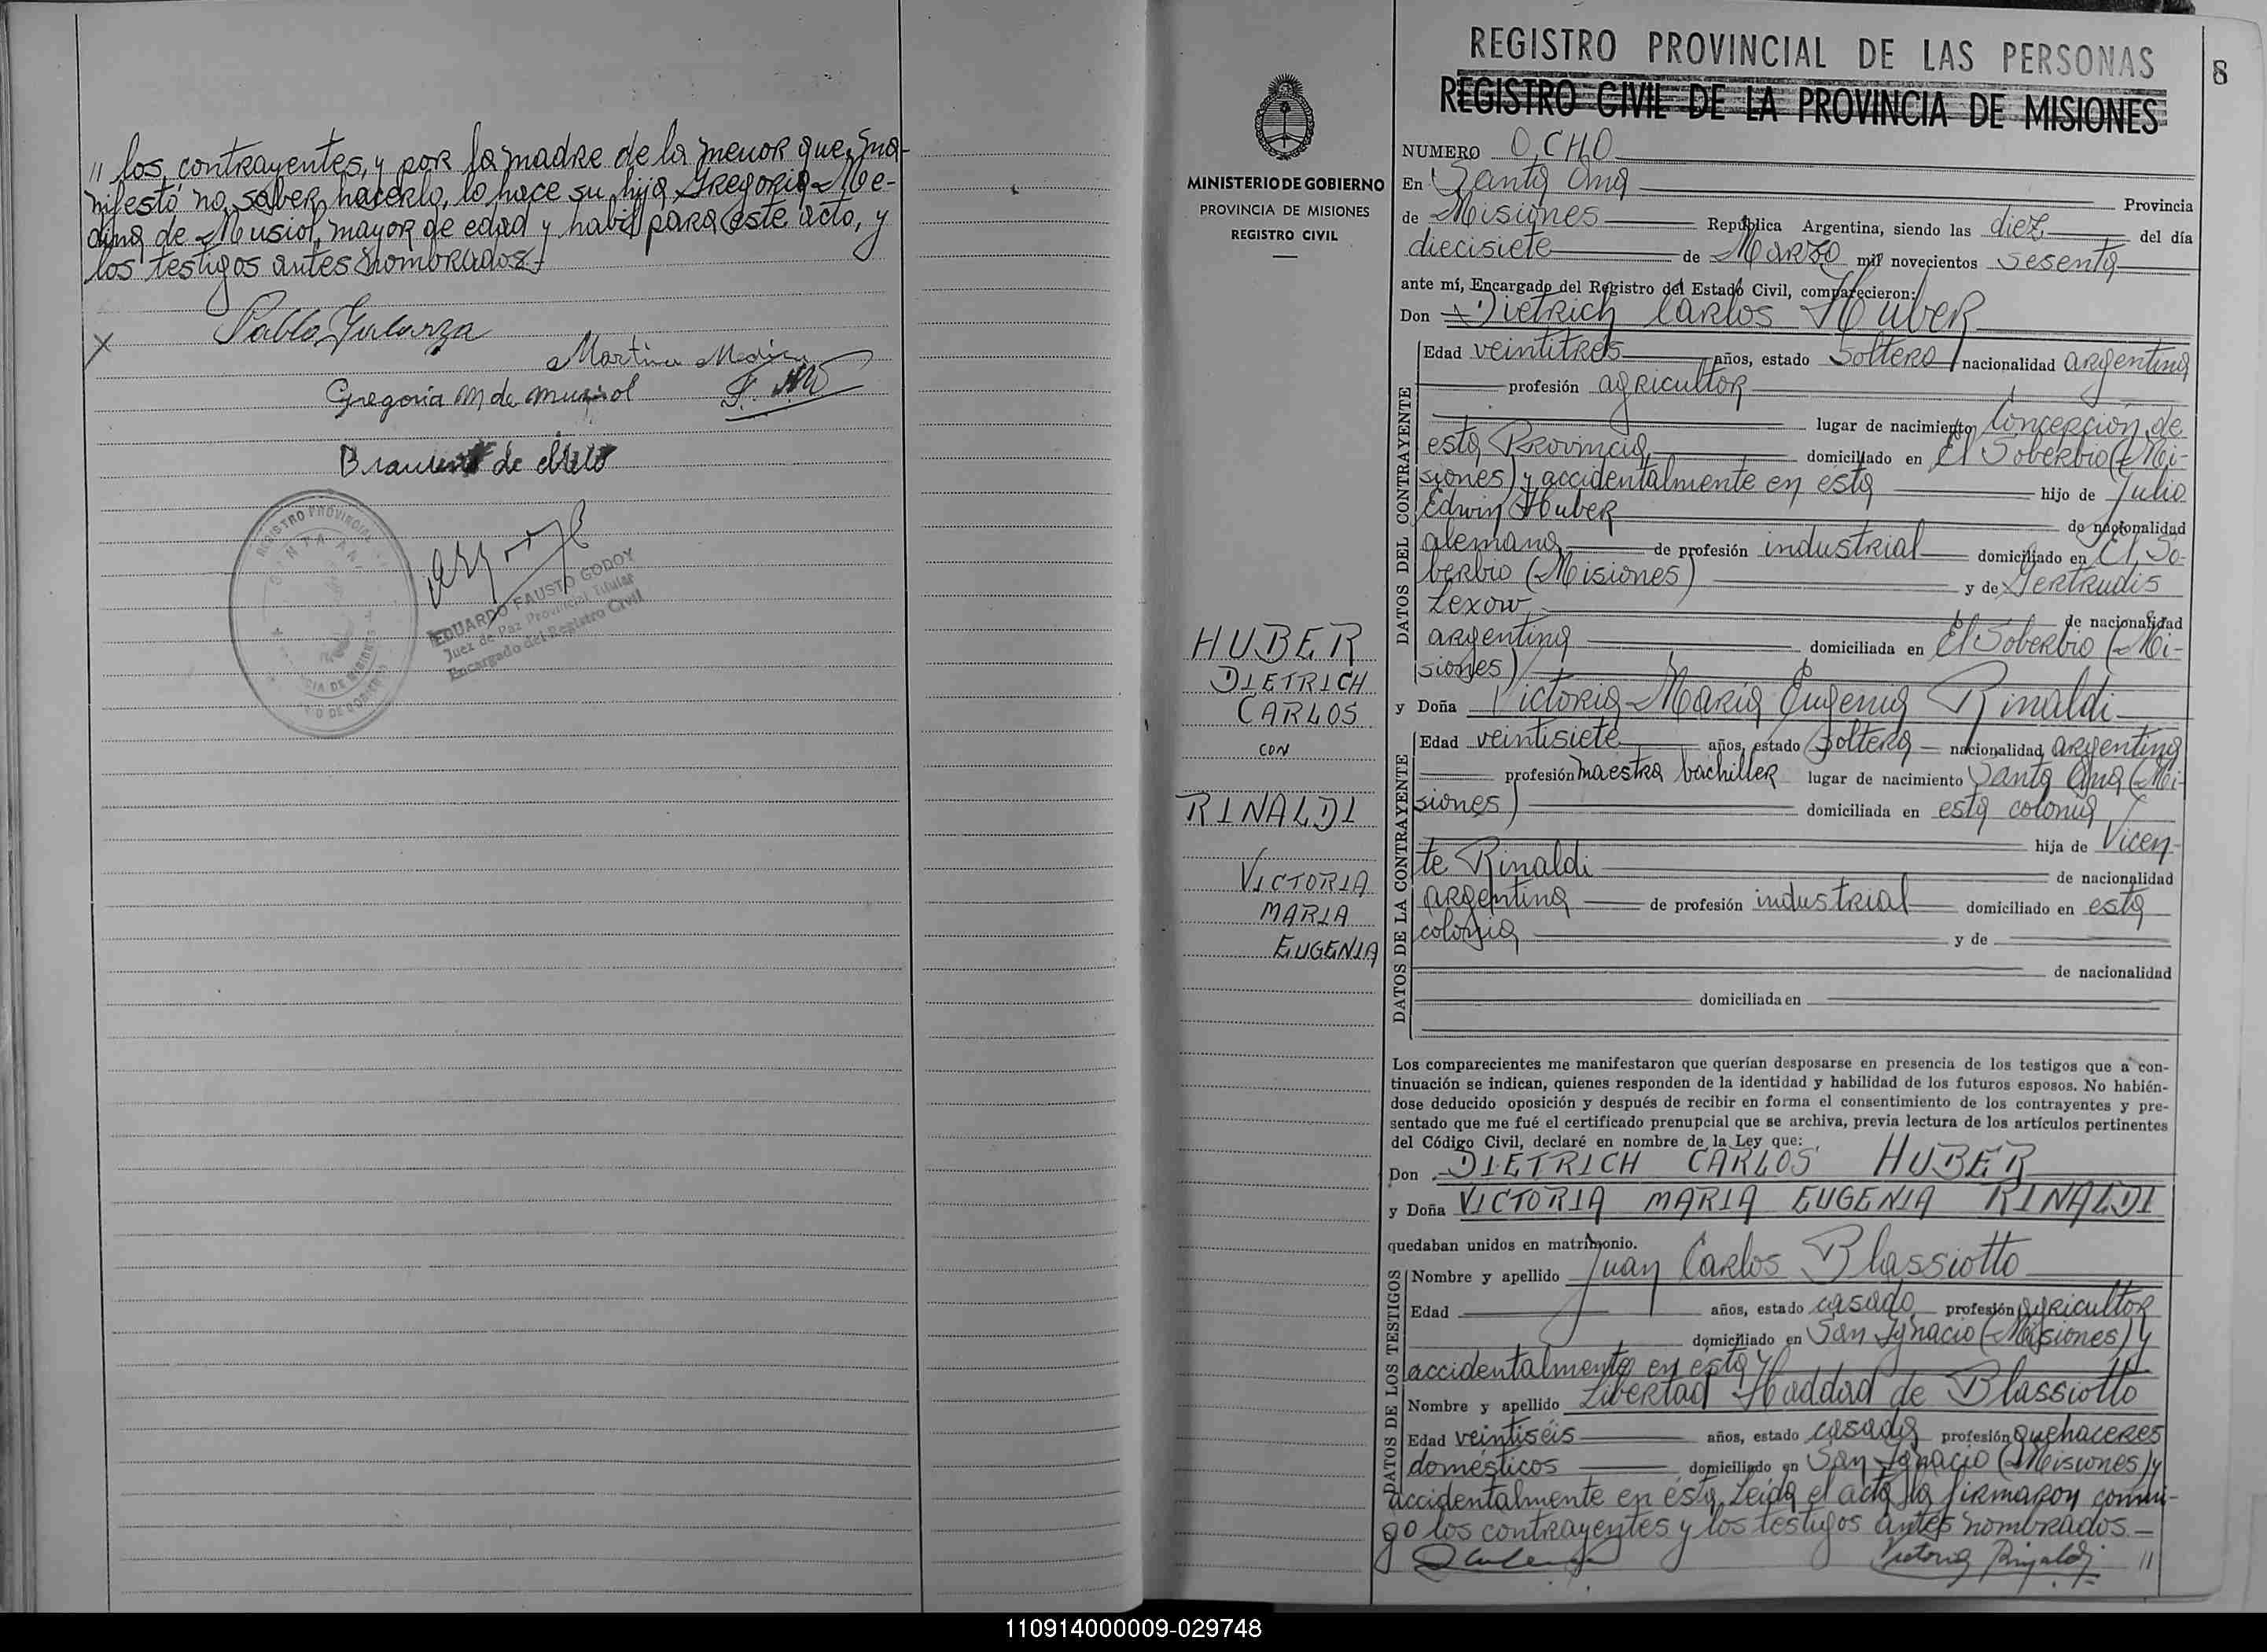 " los contrayentes, y por la madre de la menor que ma-
nifestó no saber hacerlo, lo hace su hija Gregoria Me-
dina de Musiol, mayor de edad y habil para este acto, y
los testigos antes nombrados.-
Pablo Galarza
Martina Medina
Gregoria M de musiol
de
REGISTRO PROVINCIAL
SANTA ANA
EDUARDO FAUSTO GODOY
Juez de Paz Provincial Titular
Encargado del Registro Civil
MINISTERIO DE GOBIERNO
PROVINCIA DE MISIONES
REGISTRO CIVIL
HUBER
DIETRICH
CARLOS
CON
RINALDI
VICTORIA
MARIA
EUGENIA
REGISTRO PROVINCIAL DE LAS PERSONAS
8
REGISTRO CIVIL DE LA PROVINCIA DE MISIONES
NUMERO OCHO
En Santa Ana Provincia
de Misiones República Argentina, siendo las diez del día
diecisiete de Marzo mil novecientos sesenta
ante mí, Encargado del Registro del Estado Civil, comparecieron:
Don Dietrich Carlos Huber
DATOS DEL CONTRAYENTE
Edad veintitres años, estado soltero nacionalidad argentina
profesión agricultor
lugar de nacimiento Concepción de
esta Provincia, domiciliado en El Soberbio (Mi-
siones) y accidentalmente en esta hijo de Julio
Edwin Huber de nacionalidad
alemana de profesión industrial domiciliado en El So-
berbio (Misiones) y de Gertrudis
Lexow, de nacionalidad
argentina domiciliada en El Soberbio (Mi-
siones)
y Doña Victoria Maria Eugenia Rinaldi
DATOS DE LA CONTRAYENTE
Edad veintisiete años, estado soltera nacionalidad argentina
profesión maestra bachiller lugar de nacimiento Santa Ana (Mi-
siones) domiciliada en esta colonia
hija de Vicen-
te Rinaldi de nacionalidad
argentina de profesión industrial domiciliado en esta
colonia y de
de nacionalidad
domiciliada en
Los comparecientes me manifestaron que querían desposarse en presencia de los testigos que a con-
tinuación se indican, quienes responden de la identidad y habilidad de los futuros esposos. No habién-
dose deducido oposición y después de recibir en forma el consentimiento de los contrayentes y pre-
sentado que me fué el certificado prenupcial que se archiva, previa lectura de los artículos pertinentes
del Código Civil, declaré en nombre de la Ley que:
Don DIETRICH CARLOS HUBER
y Doña VICTORIA MARIA EUGENIA RINALDI
quedaban unidos en matrimonio.
DATOS DE LOS TESTIGOS
Nombre y apellido Juan Carlos Blassiotto
Edad años, estado casado profesión agricultor
domiciliado en San Ignacio (Misiones) y
accidentalmente en esta y
Nombre y apellido Libertad Haddad de Blassiotto
Edad veintiséis años, estado casada profesión quehaceres
domésticos domiciliado en San Ignacio (Misiones) y
accidentalmente en ésta. Leída el acta la firmaron conmi-
go los contrayentes y los testigos antes nombrados.-
Victoria Rinaldi "
110914000009-029748